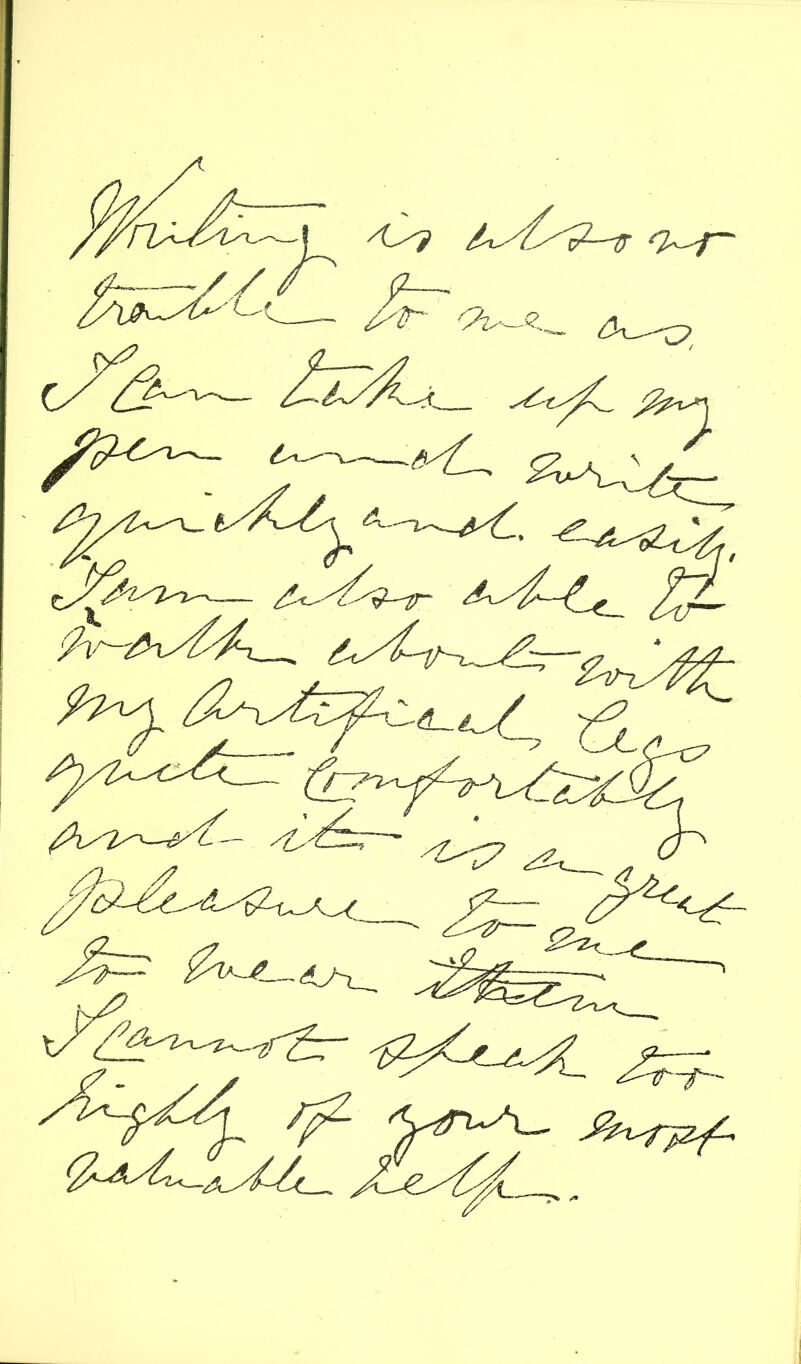 Writing is also no
trouble to me as
I can take up my
pen and write
quickly and easily.
I am also able to
walk about with
my Artifical Legs
quite Comfortably
and it is a great
pleasure to me
to wear them
I cannot speak too
highly of your most
valuable help.